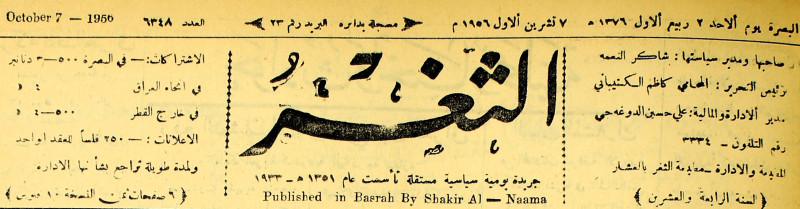 البصرة يوم الاحد ٢ ربيع الاول ١٣٧٦ ه ٧ تشرين الاول ١٩٥٦ م مسجلة بدائرة البريد رقم ٢٣ العدد ٦٣٤٨ October 7 - 1956
صاحبها ومدير سياستها : شاكر النعمه
رئيس التحرير : المحامي كاظم الكشيباني
مدير الادارة والمالية : علي حسين الدوغه جي
رقم التلفون - ٣٣٣٤
والادارة - مطبعة الثغر بالعشار
﴿ السنة الرابعة والعشرين ﴾
الثغر
جريدة يومية سياسية مستقلة تأسست عام ١٣٥١ هـ - ١٩٣٣
Published in Basrah By Shakir Al - Naama
الاشتراكات : - في البصرة ٥٠٠-٣ دنانير
في انحاء العراق ٤ د
في خارج القطر ٥٠٠-٤ د
الاعلانات : - ٢٥٠ فلساً للعقد الواحد
ولمدة طويلة تراجع بشأنها الادارة
﴿ ٦ صفحات ثمن النسخة ١٠ فلوس ﴾